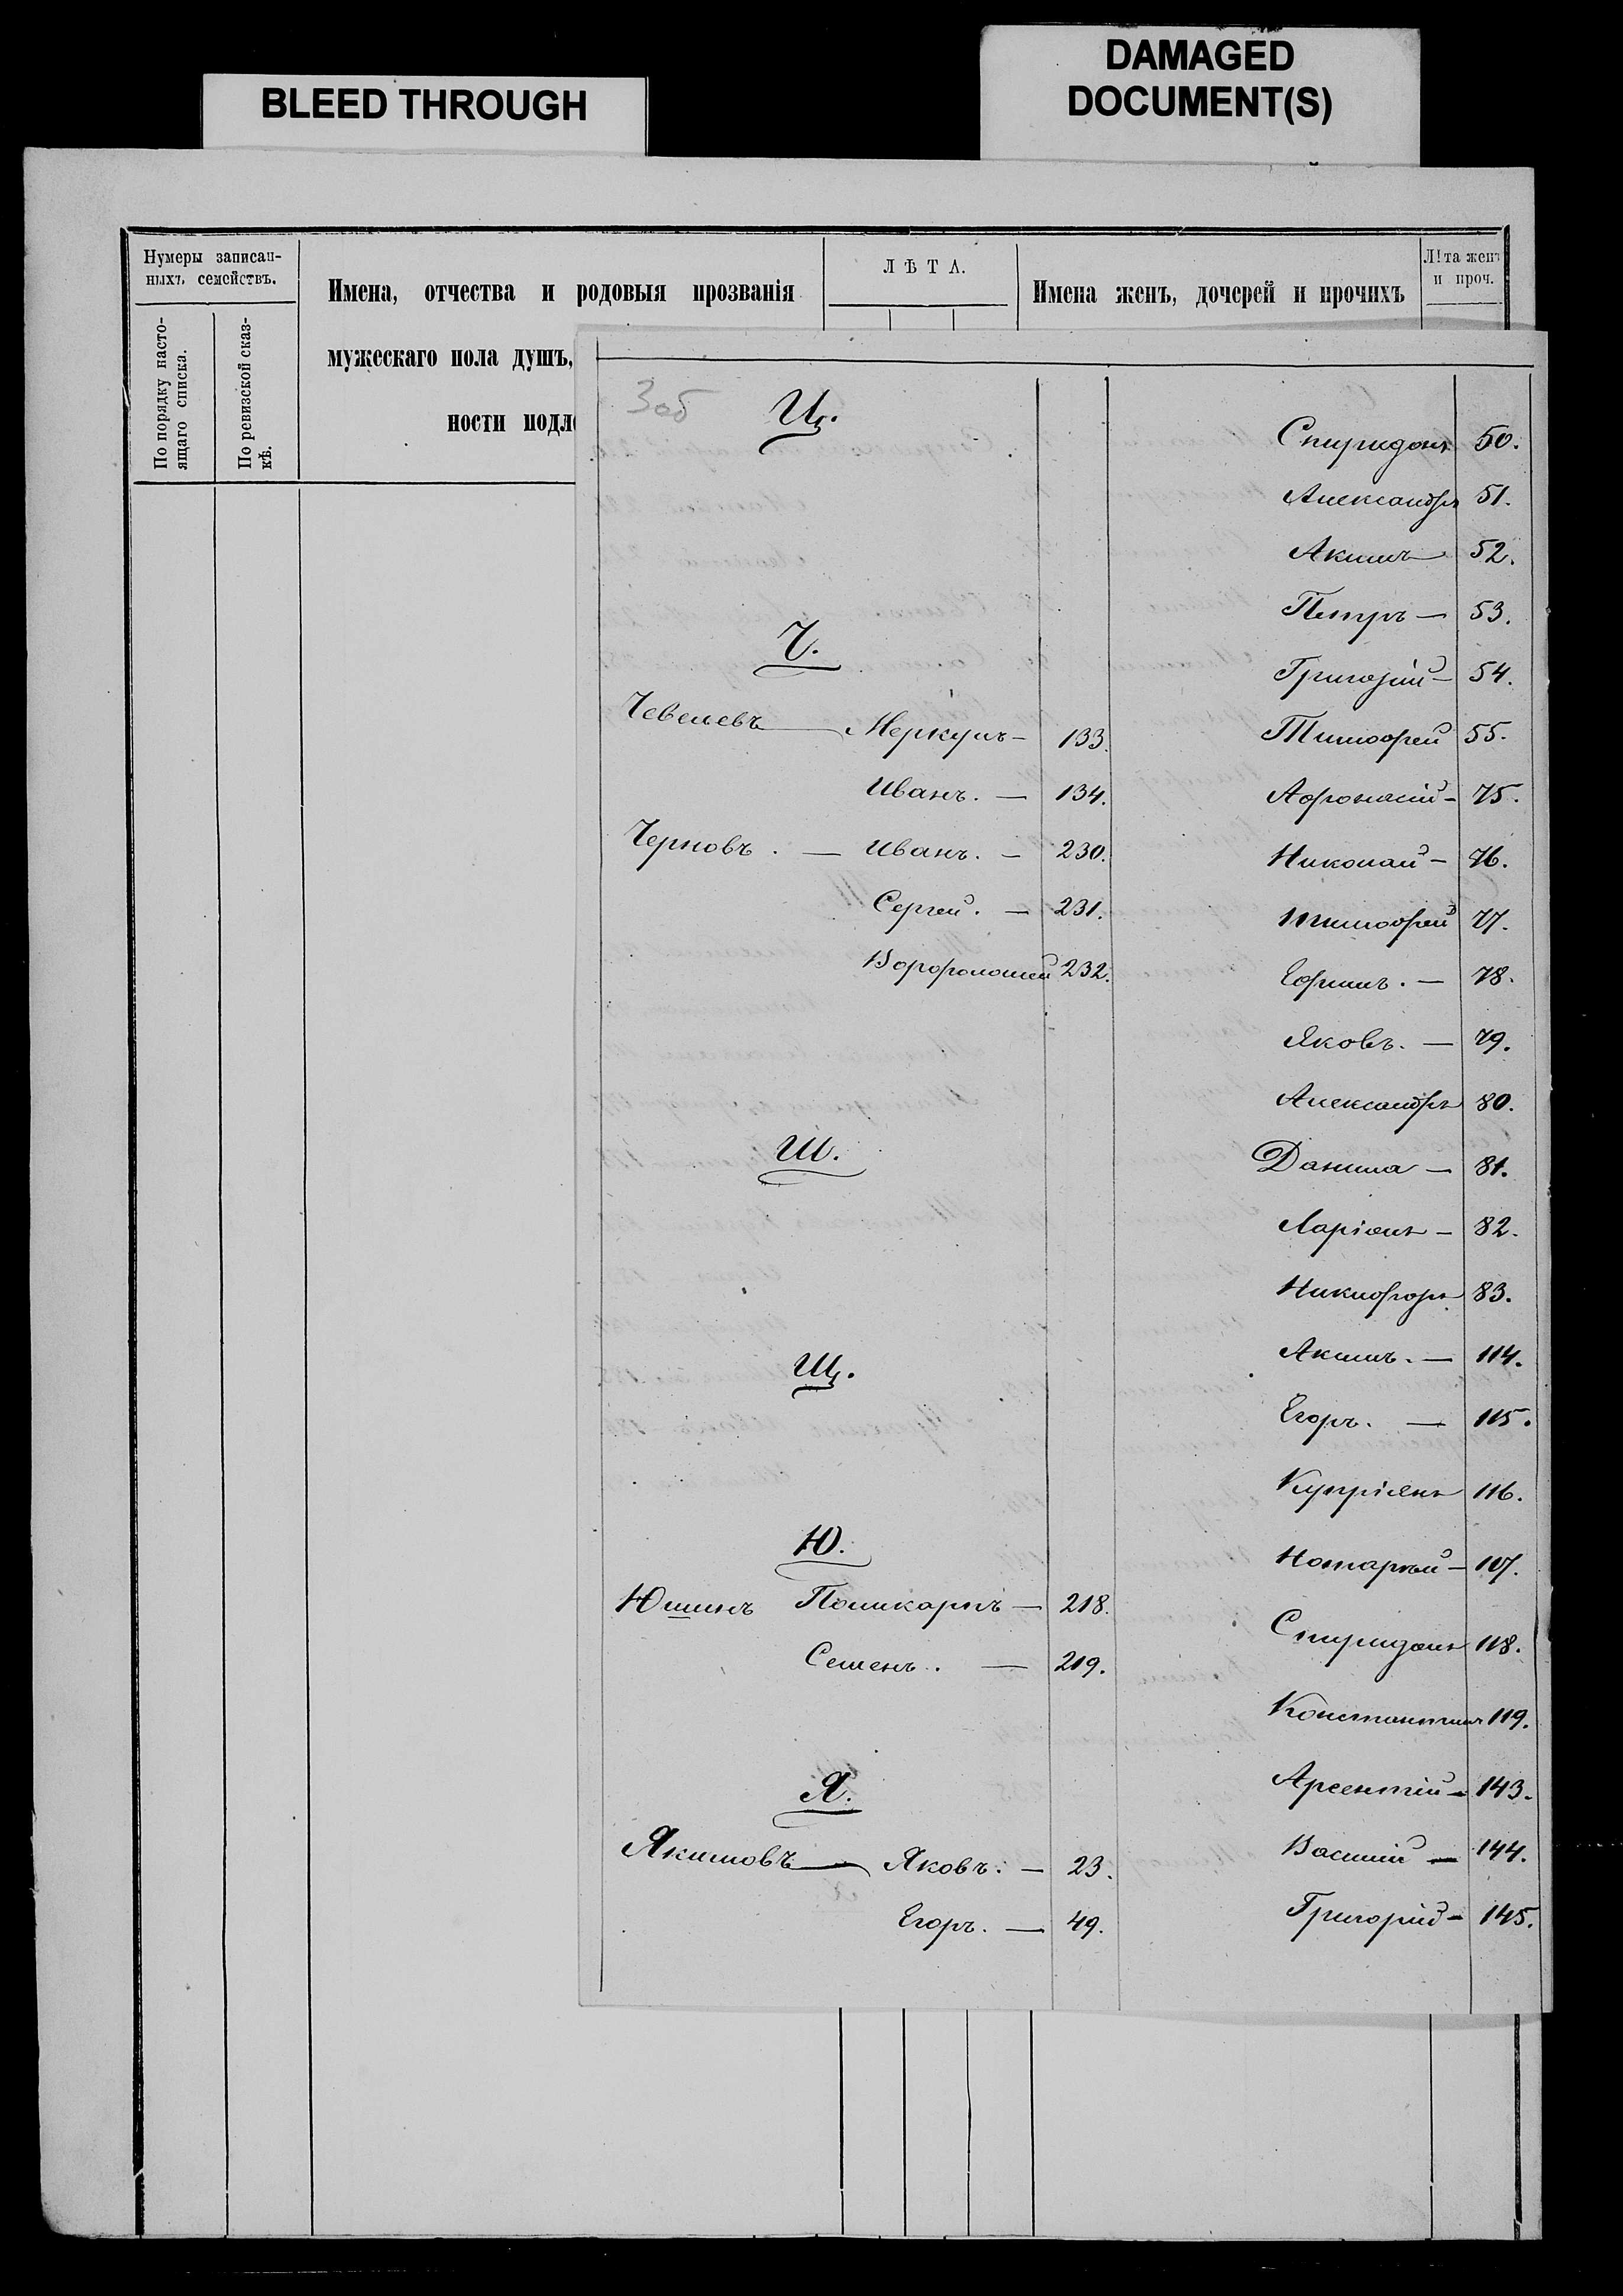 BLEED THROUGH
DAMAGED
DOCUMENT(S)
Нумеры записан-
ныхъ семействъ.
По порядку насто-
ящаго списка.
По ревизской сказ-
кѣ.
Имена, отчества и родовыя прозванія
мужескаго пола душъ,
ности подл
ЛѢТА.
Имена женъ, дочерей и прочихъ
Лѣта женъ
и проч.
3об
Ц.
Ч.
Чевелевъ — Меркулъ — 133.
Иванъ. — 134.
Черновъ. — Иванъ. — 230.
Сергей. — 231.
Ворфоломей 232.
Ш.
Щ.
Ю.
Юшинъ Поликарпъ — 218.
Семенъ. — 219.
Я.
Якимовъ — Яковъ. — 23.
Егоръ. — 49.
Спиридонъ 50.
Александръ 51.
Акимъ 52.
Петръ — 53.
Григорій — 54.
Тимофей 55.
Афонасій — 75.
Николай — 76.
Тимофей 77.
Ефимъ. — 78.
Яковъ. — 79.
Александръ 80.
Данила — 81.
Ларіонъ — 82.
Никифоръ 83.
Акимъ. — 114.
Егоръ. — 115.
Купріянъ 116.
117.
Спиридонъ 118.
Константинъ 119.
Арсентій — 143.
Василій — 144.
Григорій — 145.